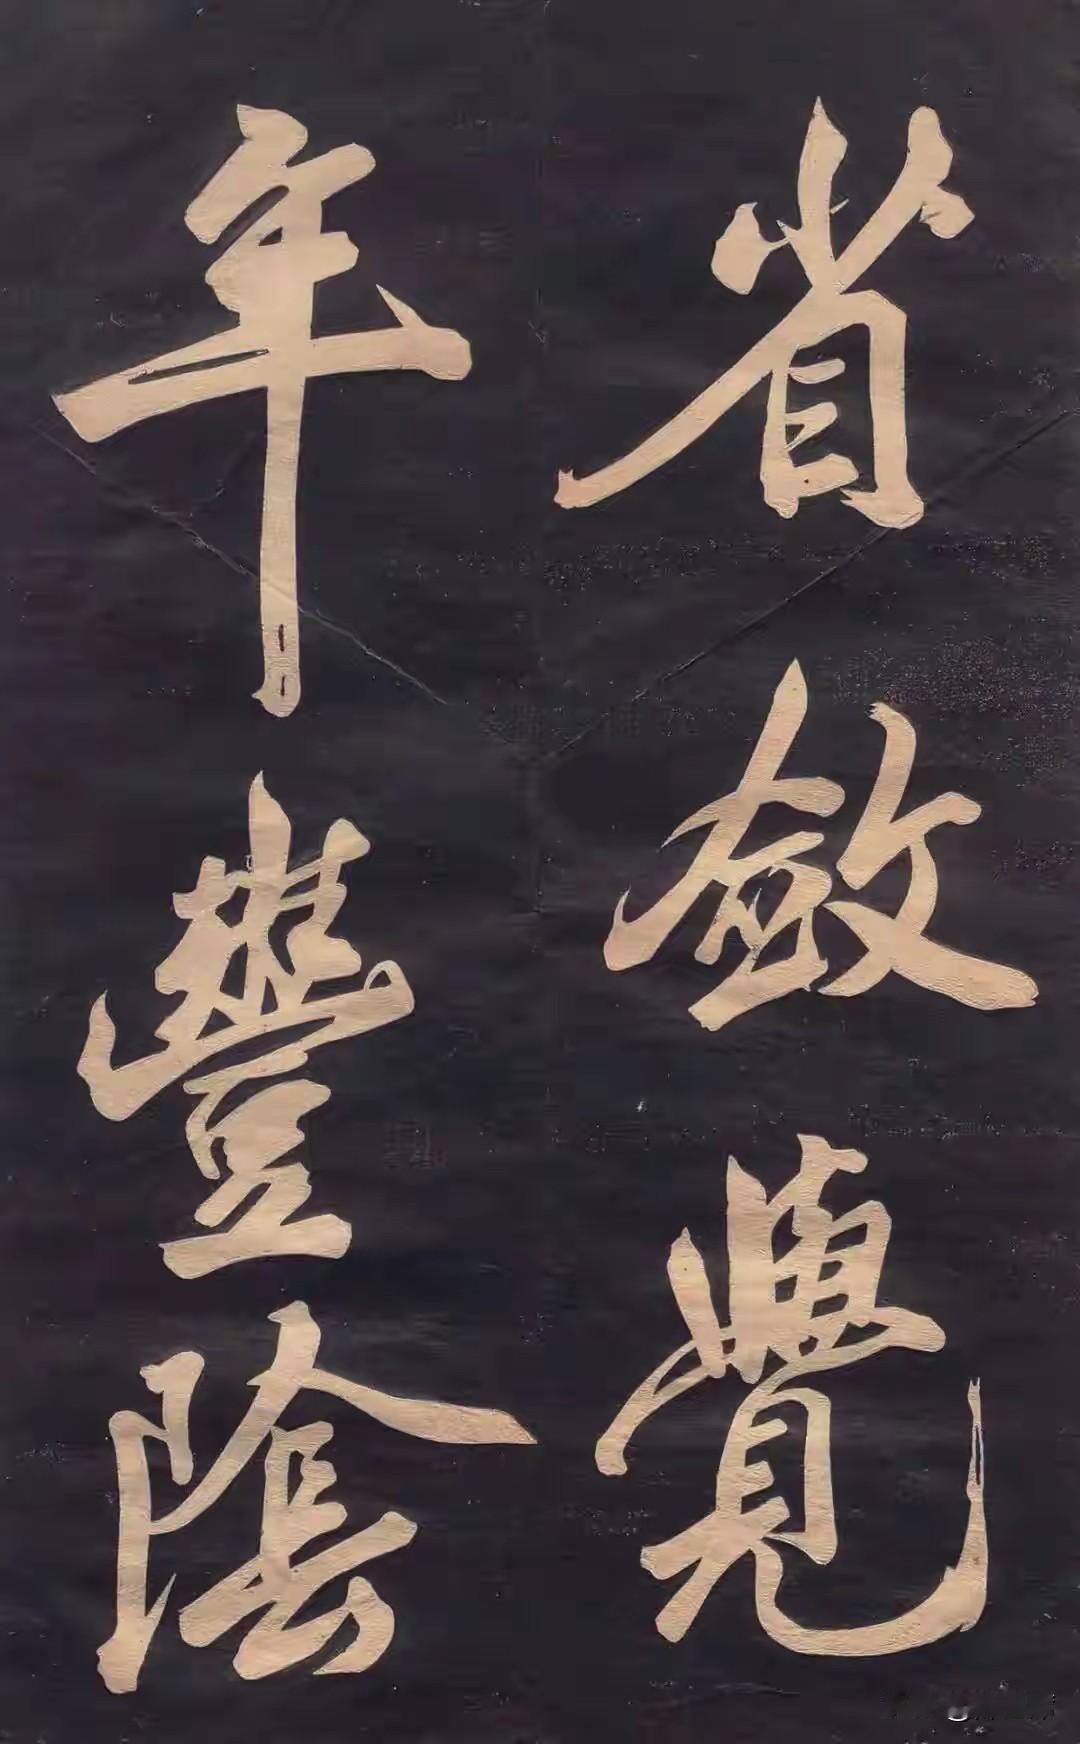 省敛覺
年豐陰